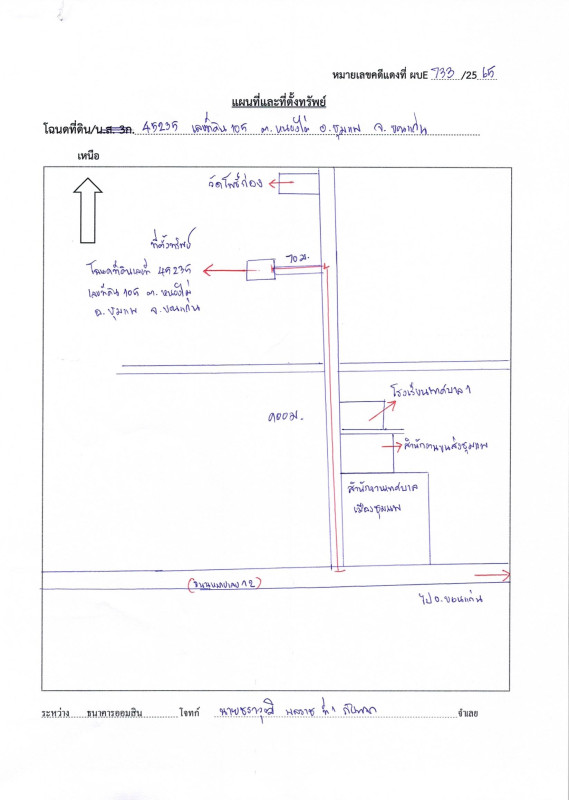 หมายเลขคดีแดงที่ ผบE 733 /25 65
แผนที่และที่ตั้งทรัพย์
โฉนดที่ดิน/น.ส. 3ก. 45235 เลขที่ดิน 105 ต.หนองไผ่ อ.ชุมแพ จ.ขอนแก่น
เหนือ
วัดโพธิ์ก่อง
ที่ตั้งทรัพย์
70 ม.
โฉนดที่ดินเลขที่ 45235
เลขที่ดิน 105 ต.หนองไผ่
อ.ชุมแพ จ.ขอนแก่น
โรงเรียนเทศบาล 1
900ม.
สำนักงานขนส่งชุมแพ
สำนักงานเทศบาล
เมืองชุมแพ
(ถนนหมายเลข 12)
ไป อ.ขอนแก่น
ระหว่าง ธนาคารออมสิน โจทก์ นายชราวุฒิ ที่ 1 จำเลย